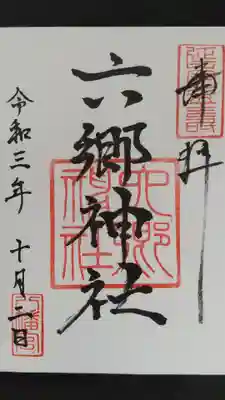 奉拝
六郷神社
六郷
神社
令和三年 十月二日